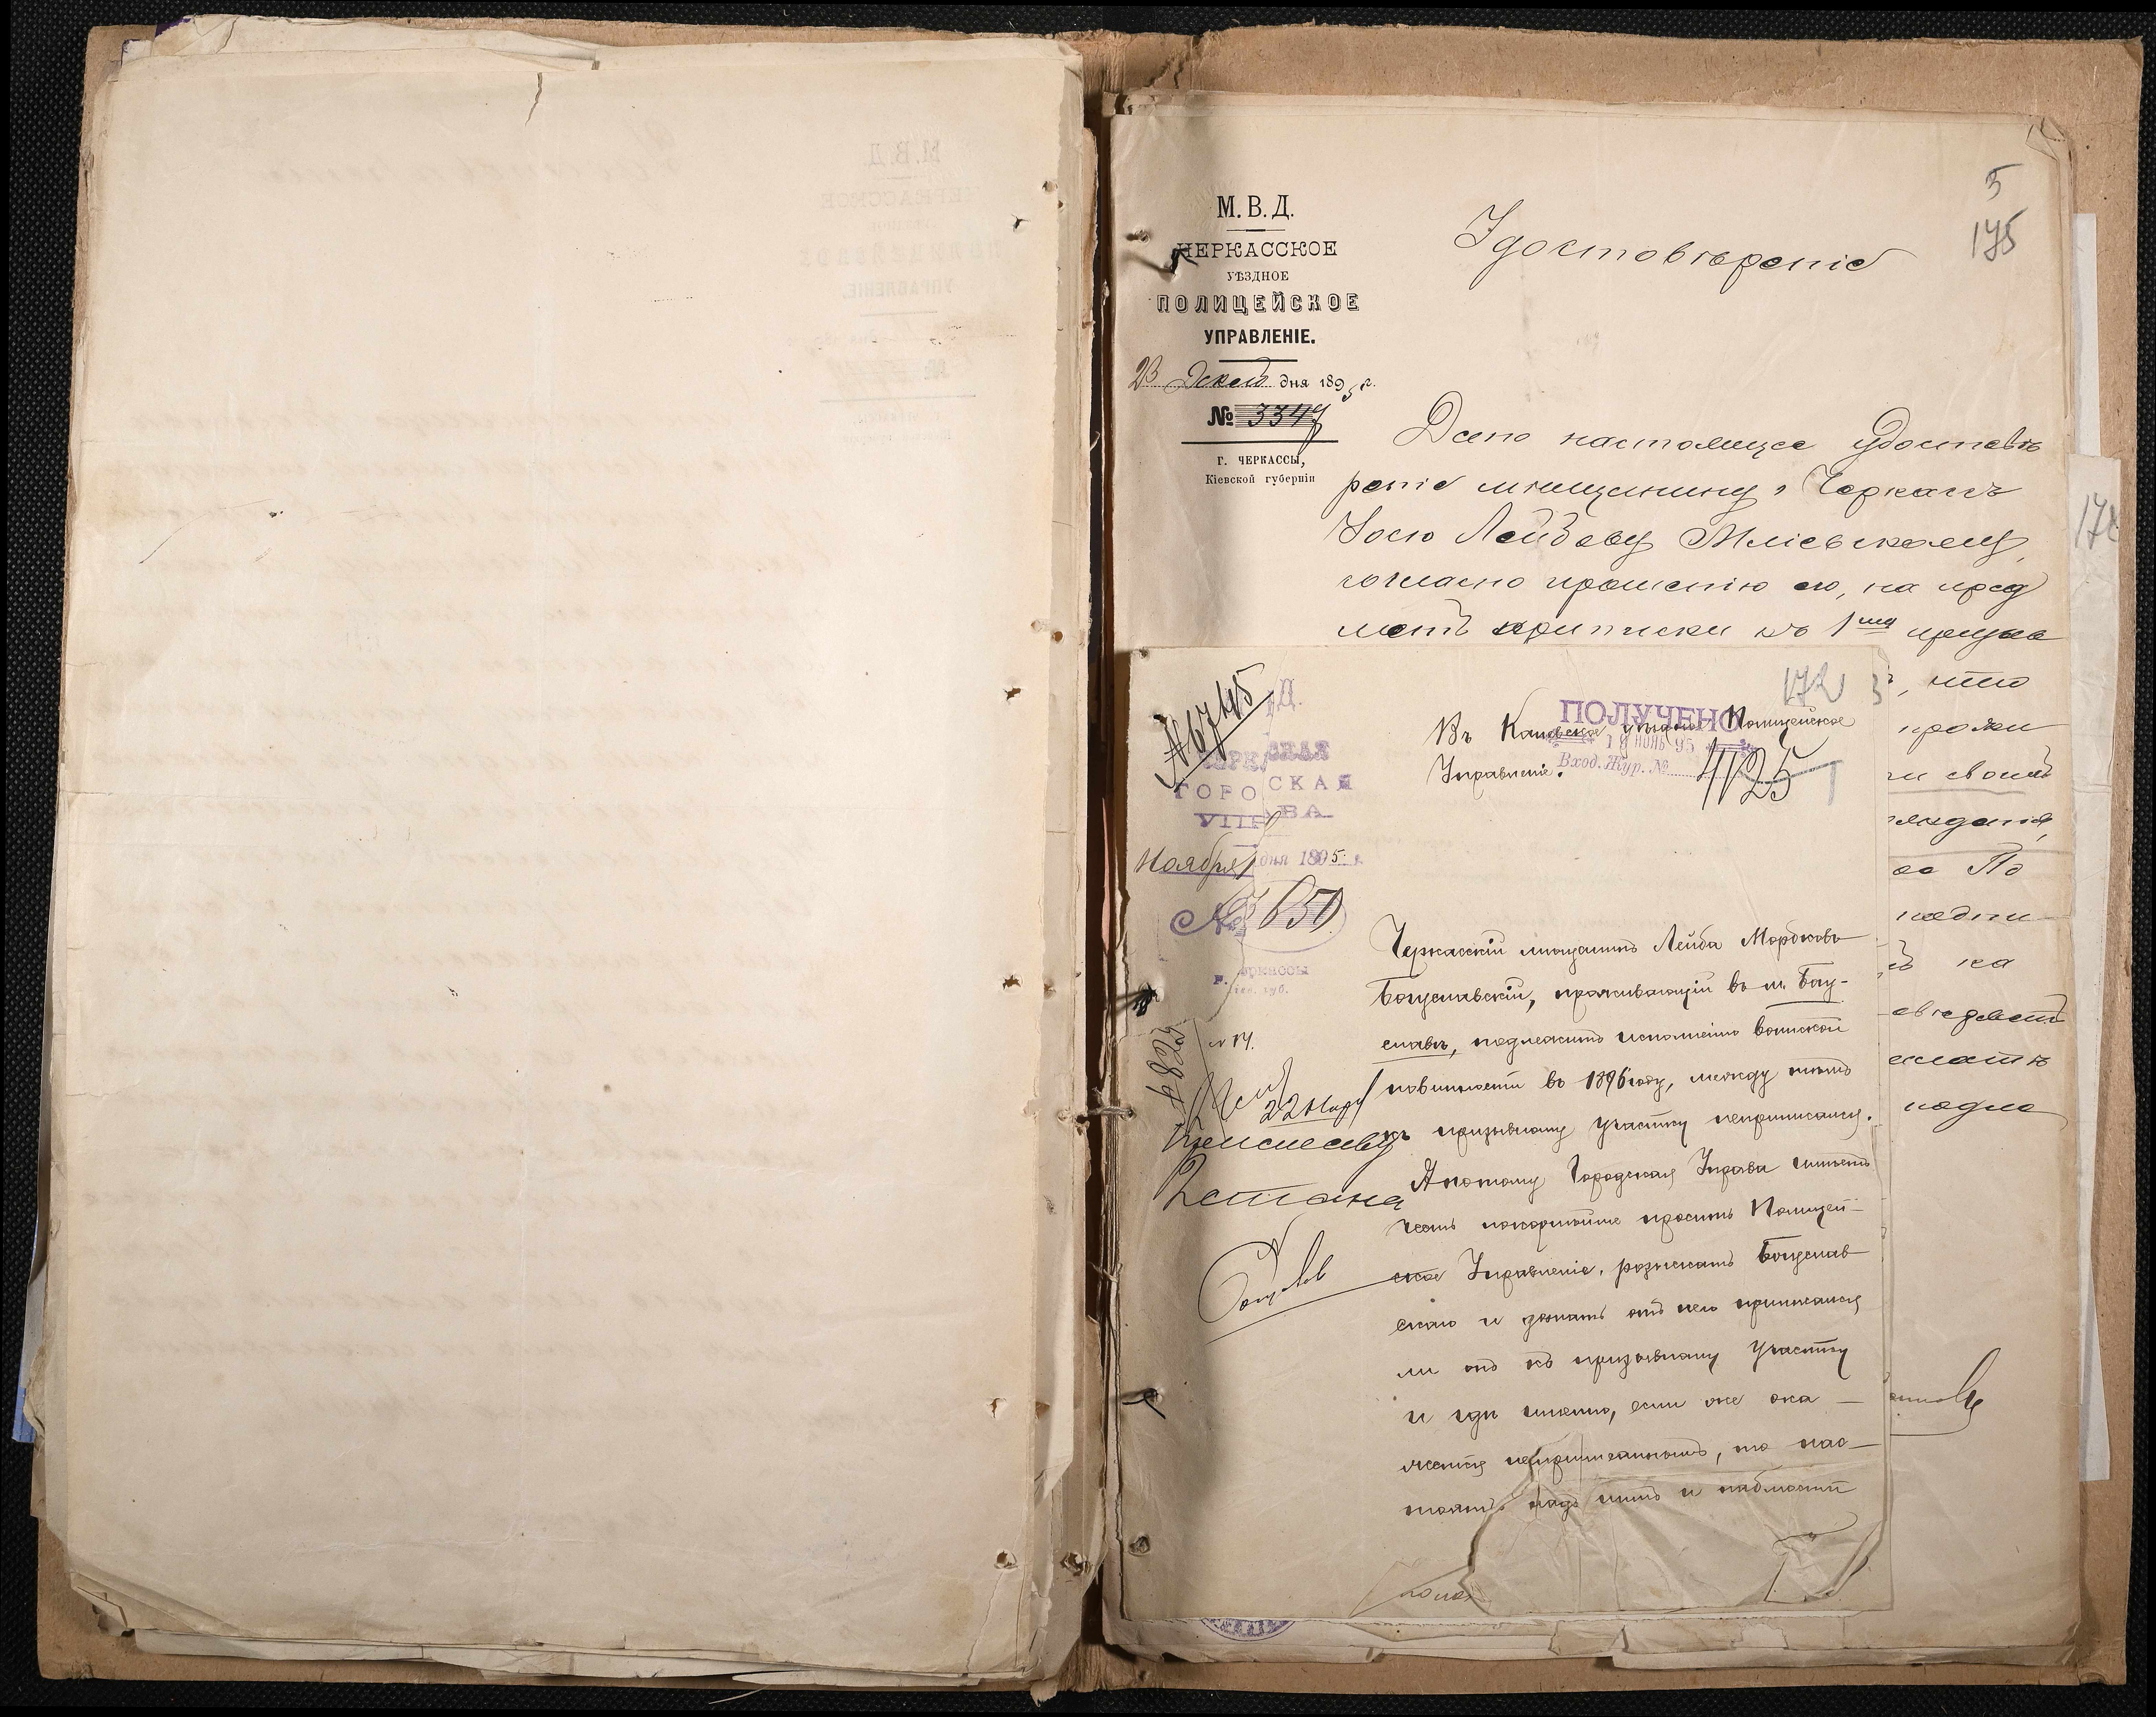 5
175
М. В. Д.
ЧЕРКАССКОЕ
УѢЗДНОЕ
ПОЛИЦЕЙСКОЕ
УПРАВЛЕНІЕ.
23 Декаб дня 1895 г.
№ 3347
Г. ЧЕРКАССЫ,
Кіевской губерніи
Удостовѣреніе
Дано настоящее удостовѣ
реніе мѣщанину г Черкасъ
Іосю Лейбову Мліевскому,
согласно прошенію его, на пред
метъ приписки къ 1му призыв
, что
прожи
своей
По
на
подле
178
172
№ 6745
Д.
ГОРОДСКАЯ
УПРАВА
Ноября дня 1895 г.
№ 3650
г. Черкассы
Кіев. губ.
ПОЛУЧЕНО
18 НОЯБ 95
Вход. Жур. №
4125
Въ Каневское уѣздное Полицейское
Управленіе.
Черкасскій мѣщанинъ Лейба Мордковъ
Богуславскій, проживающій въ м. Богу-
славѣ, подлежитъ исполненію воинской
повинности въ 1896 году, между тѣмъ
къ призывному участку неприписался.
А потому Городская Управа имѣетъ
честь покорнѣйше просить Полицей-
ское Управленіе, розыскать Богуслав
скаго и узнать отъ него приписался
ли онъ къ призывному участку
и гдѣ именно, если же ока-
жется неприписаннымъ, то нас-
тоять надъ нимъ и
22 Нояр